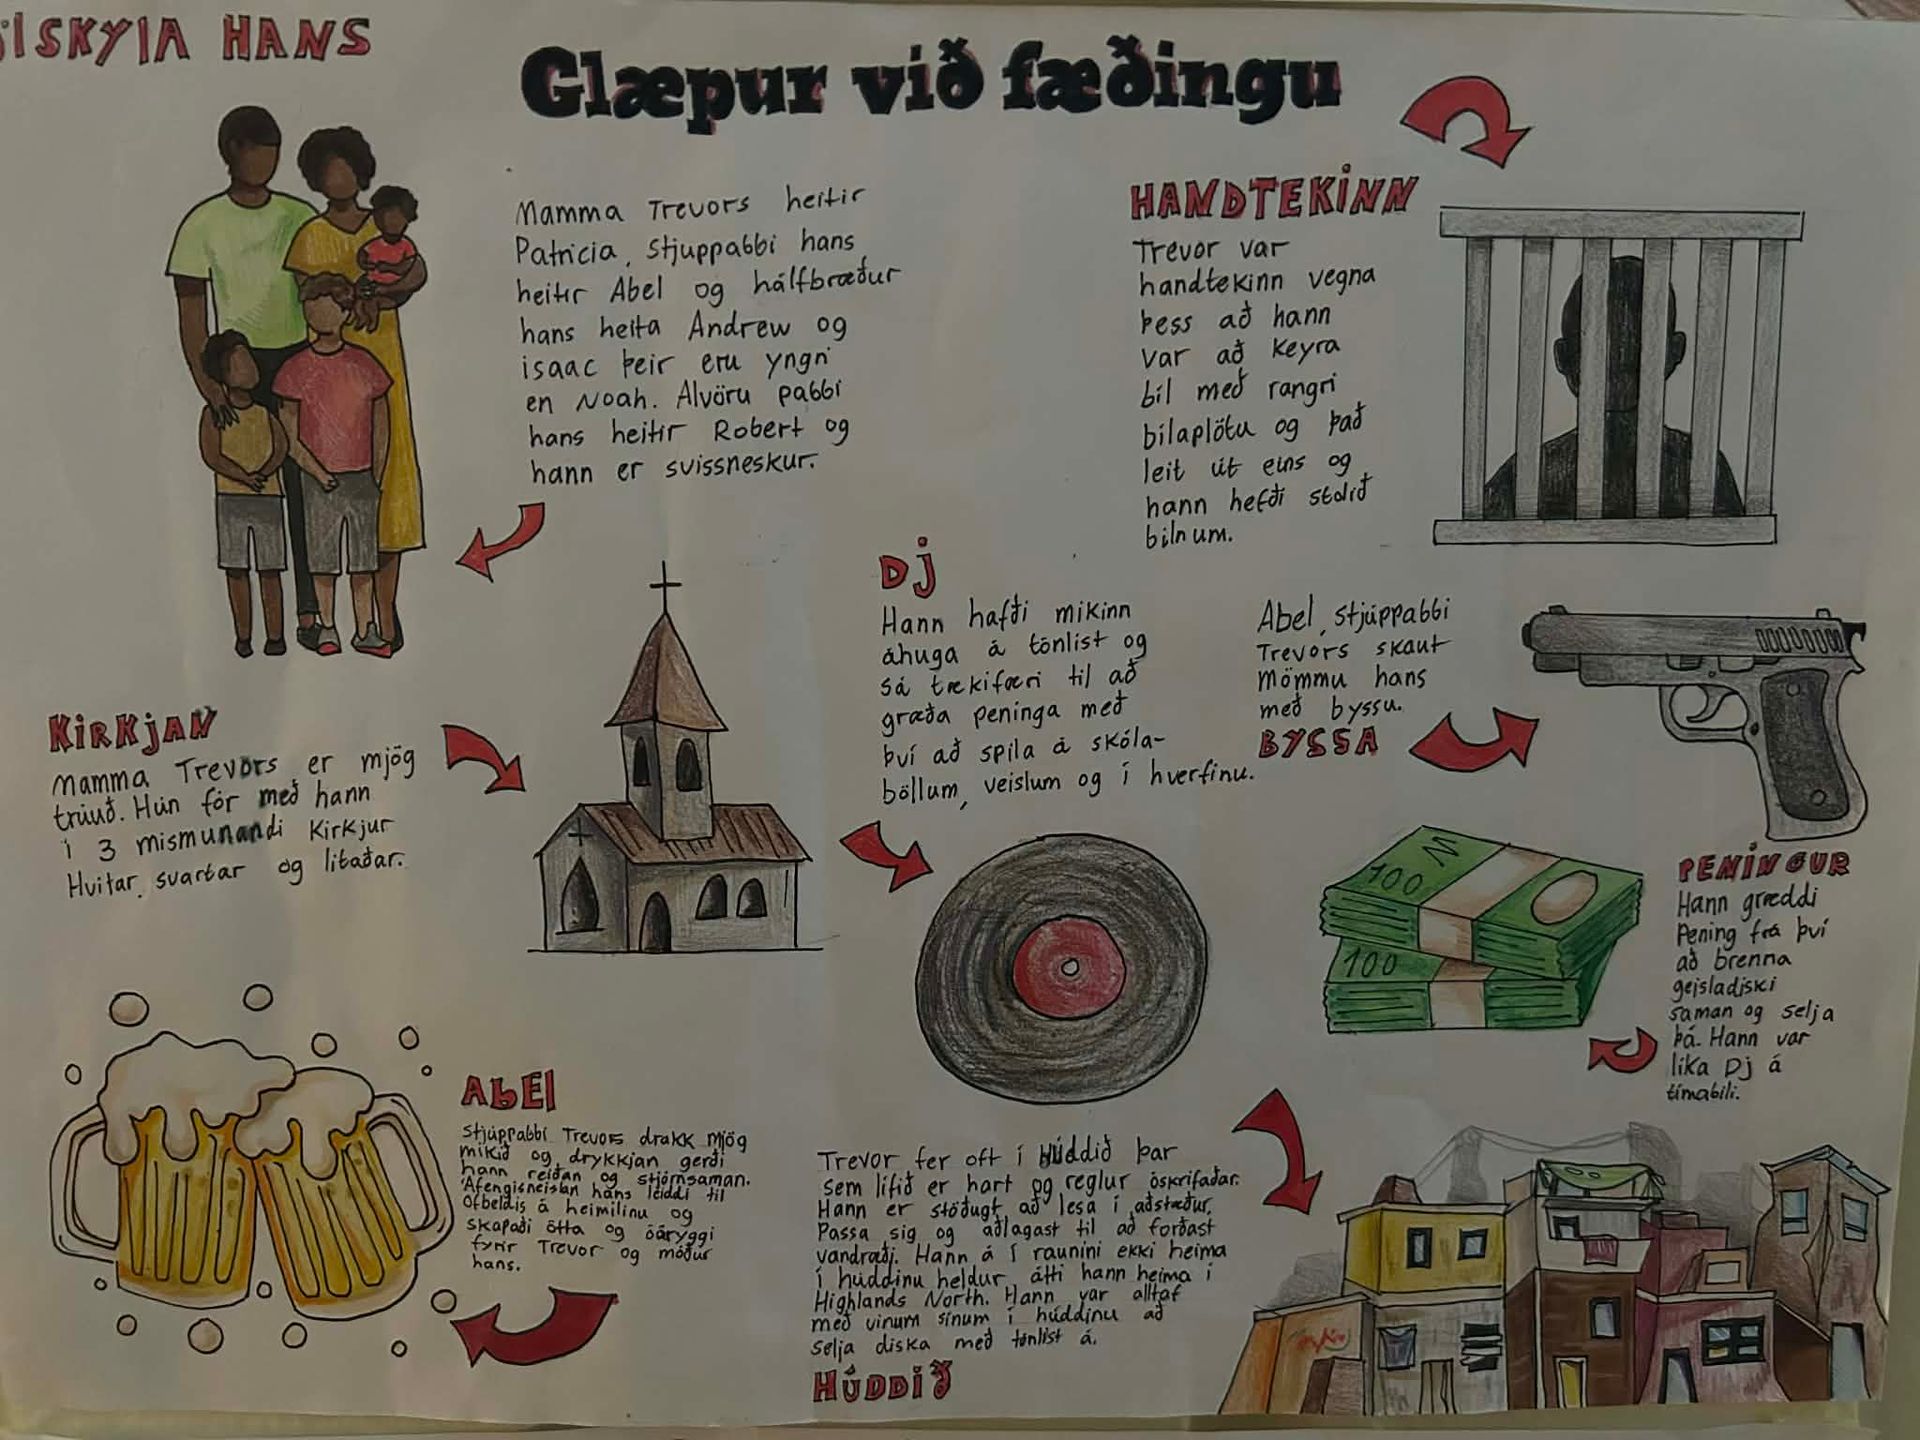 HANS
Glæpur við fæðingu
Mamma Trevors heitir
Patricia, stjuppabbi hans
heitir Abel og hálfbræður
hans heita Andrew og
isaac þeir eru yngri
en Noah. Alvöru pabbi
hans heitir Robert og
hann er svissneskur.
HANDTEKINN
Trevor var
handtekinn vegna
þess að hann
var að keyra
bíl með rangri
bílaplötu og það
leit út eins og
hann hefði stolið
bílnum.
KIRKJAN
Mamma Trevors er mjög
trúuð. Hún fór með hann
í 3 mismunandi kirkjur
Hvítar, svartar og litaðar.
Dj
Hann hafði mikinn
áhuga á tónlist og
sá tækifæri til að
græða peninga með
því að spila á skóla-
böllum, veislum og í hverfinu.
Abel, stjúppabbi
Trevors skaut
mömmu hans
með byssu.
BYSSA
100
100
PENINGUR
Hann græddi
pening frá því
að brenna
geisladiski
saman og selja
þá. Hann var
líka Dj á
tímabili.
ABEl
Stjúppabbi Trevors drakk mjög
mikið og drykkjan gerði
hann reiðan og stjórnsaman.
Áfengisneislan hans leiddi til
ofbeldis á heimilinu og
skapaði ótta og óöryggi
fyrir Trevor og móður
hans.
Trevor fer oft í Húddið þar
sem lífið er hart og reglur óskrifaðar.
Hann er stöðugt að lesa í aðstæður,
Passa sig og aðlagast til að forðast
vandræði. Hann á í rauníni ekki heima
í húddinu heldur átti hann heima í
Highlands North. Hann var alltaf
með vinum sínum í húddinu að
selja diska með tónlist á.
HÚDDIÐ